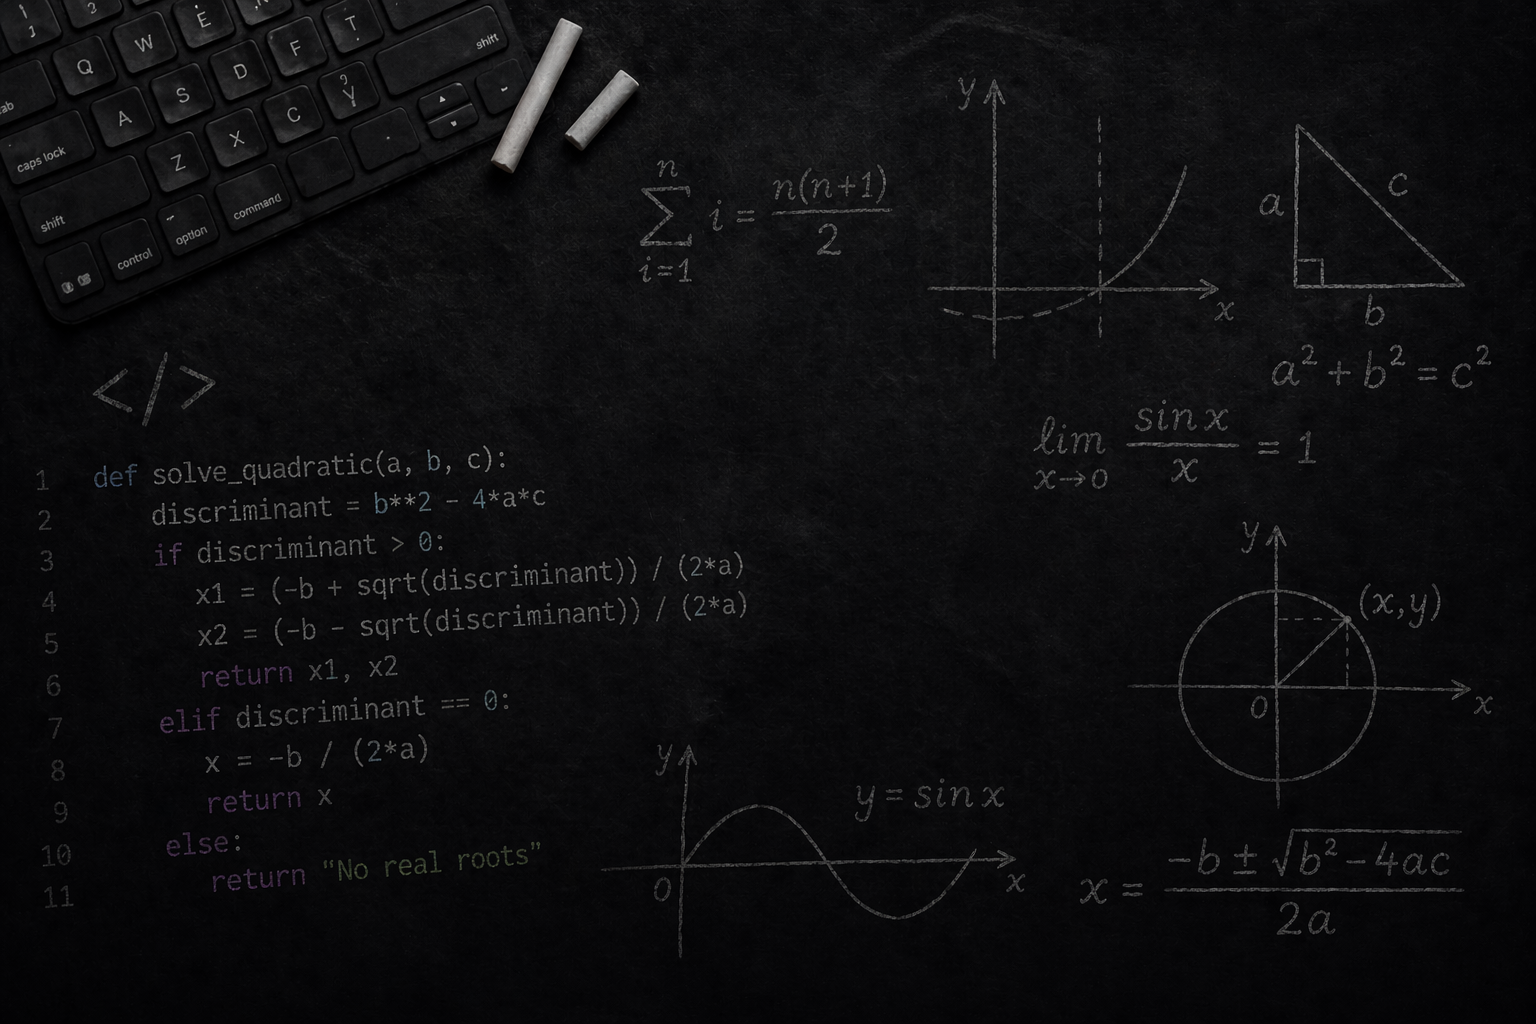 Q W E T
tab A S D F shift
caps lock Z X C Y
shift
control option command
n
∑ i = n(n+1)/2
i=1
y
x
a c
b
a² + b² = c²
lim sin x / x = 1
x→0
</>
1 def solve_quadratic(a, b, c):
2 discriminant = b**2 - 4*a*c
3 if discriminant > 0:
4 x1 = (-b + sqrt(discriminant)) / (2*a)
5 x2 = (-b - sqrt(discriminant)) / (2*a)
6 return x1, x2
7 elif discriminant == 0:
8 x = -b / (2*a)
9 return x
10 else:
11 return “No real roots”
y
(x,y)
0
x
y
y = sin x
0
x
x = -b ± √b² - 4ac / 2a